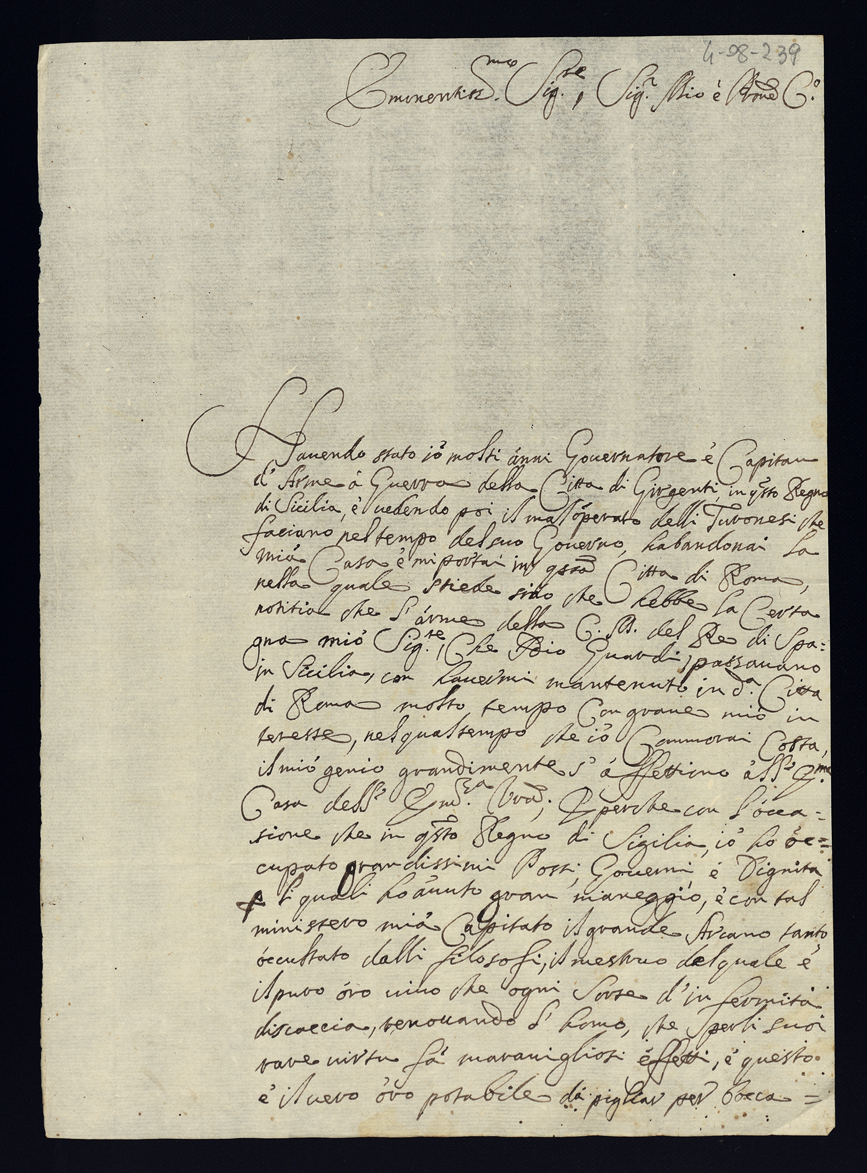 4-98-239
Eminentiss.mo Sig.re, Sig.r Mio è Pròne C.o
Hauendo stato iò molti ànni Gouernatore è Capitan
d'Arme à Guerra della Citta di Girgenti, in qsto Regno
di Sicilia, è uedendo poi il mal'òperato delli Turonesi che
faciano nel tempo del suo Gouerno, habandonai la
mià Casa è mi portai in qssa Citta di Roma,
nella quale stiede sino che hebbe la Certa
notitia che l'àrme della C. M. del Re di Spa=
gna mio Sig.re, Che Iddio Guardi, passauano
in Sicilia, con hauermi mantenuto in d.a Citta
di Roma molto tempo Con graue mio in
teresse, nel qual tempo che iò Commorai Costà,
il mio genio grandimente s'àffettiono àll'
Casa dell' Em.za Vra; E perche con l'òcca=
sione che in qsto Regno di Sigilia, iò ho òc=
cupato grandissimi Posti, Gouerni è Dignita
li quali ho àuuto gran maneggio, è con tal
ministero mià Capitato il grande Arcano tanto
òccultato dalli filosofi, il mestruo del quale è
il puro òro uiuo che ogni Sorte d'infermità
discaccia, renouando l'homo, che per li suoi
rare uirtu fà marauigliosi èffetti, è questo
è il uero òro potabile da pigliar per bocca=